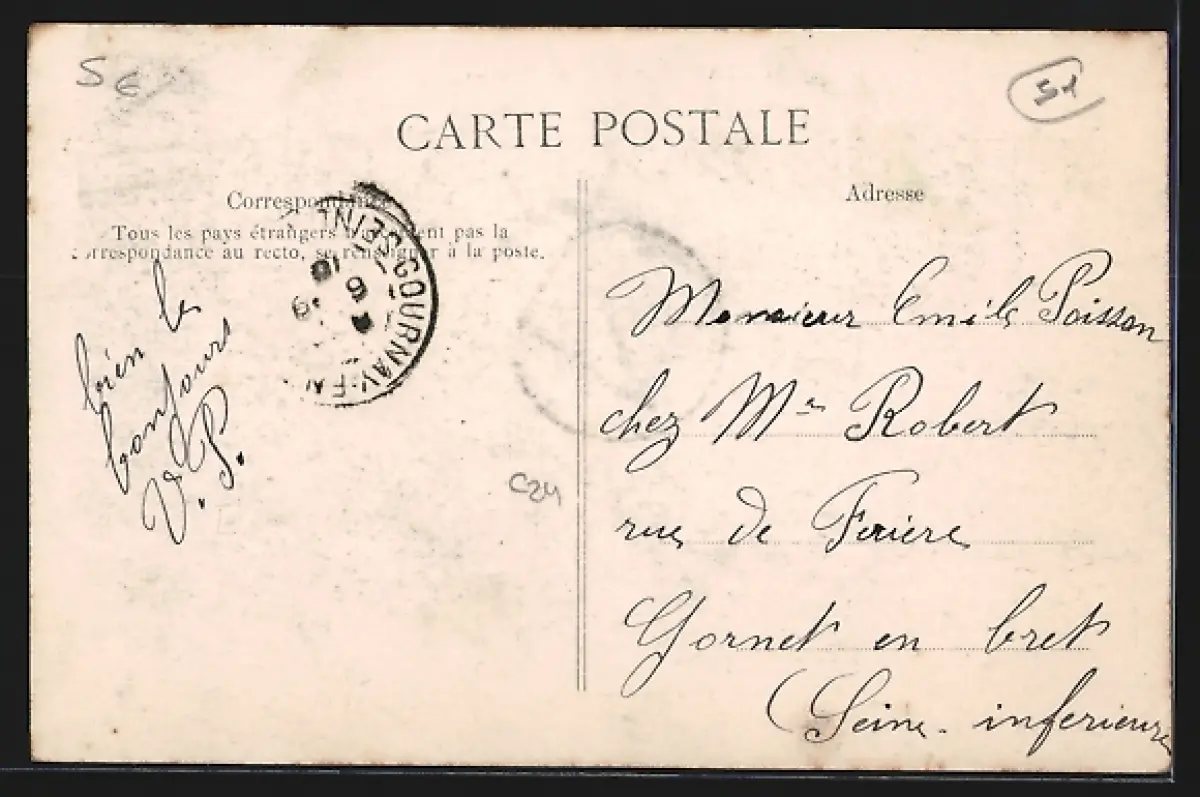 5 €
51
CARTE POSTALE
Correspondance
Tous les pays étrangers n'acceptent pas la
correspondance au recto, se renseigner à la poste.
Adresse
bien le
bonjour
V. P.
GOURNAY
SEINE
C24
Monsieur Emile Poisson
chez Mr Robert
rue de Feriere
Gornet en bret
(Seine-inferieure